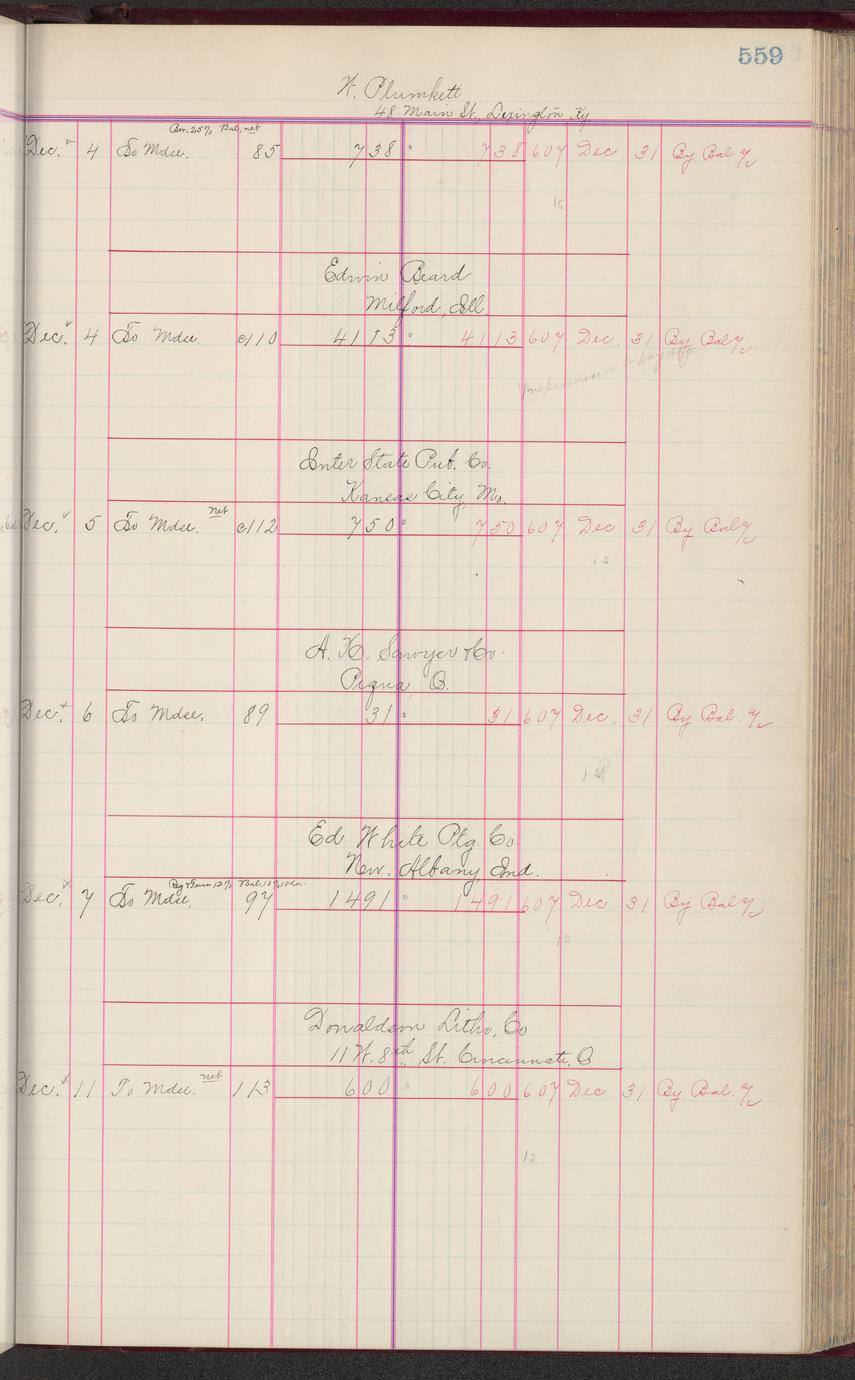 559
W. Plumkett
48 Main St., Lexington Ky.
Bor. 25% Bal, net
Dec. 4 To Mdse. 85 738 738 607 Dec. 31 By Bal %
15
Edwin Beard
Milford, Ill
Dec. 4 To Mdse. c110 4113 4113 607 Dec. 31 By Bal %
to pay
Inter State Pub. Co.
Kansas City, Mo.
net
Dec. 5 To Mdse. c112 750 750 607 Dec 31 By Bal %
12
A. H. Sawyer & Co.
Piqua O.
Dec. 6 To Mdse. 89 31 31 607 Dec. 31 By Bal. %
1
Ed White Ptg. Co.
New. Albany, Ind.
12% Bal. 10% 10 da.
Dec. 7 To Mdse. 97 1491 1491 607 Dec. 31 By Bal %
13
Donaldson Litho, Co
11 W. 8th St. Cincinnati, O
net
Dec. 11 To Mdse. 113 600 600 607 Dec 31 By Bal. %
12